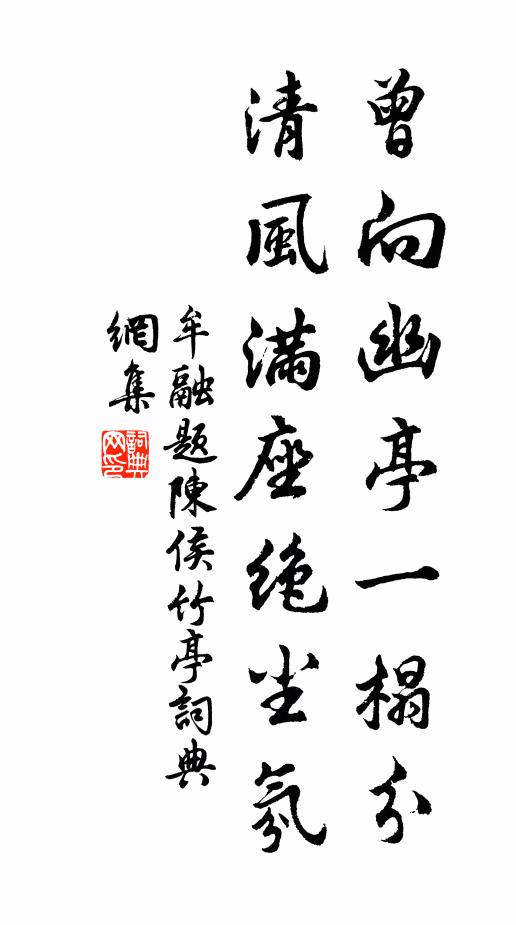 曾向幽亭一榻分
清風满座绝尘氛
牟融题陳侯竹亭詞典
網集
詞典网印